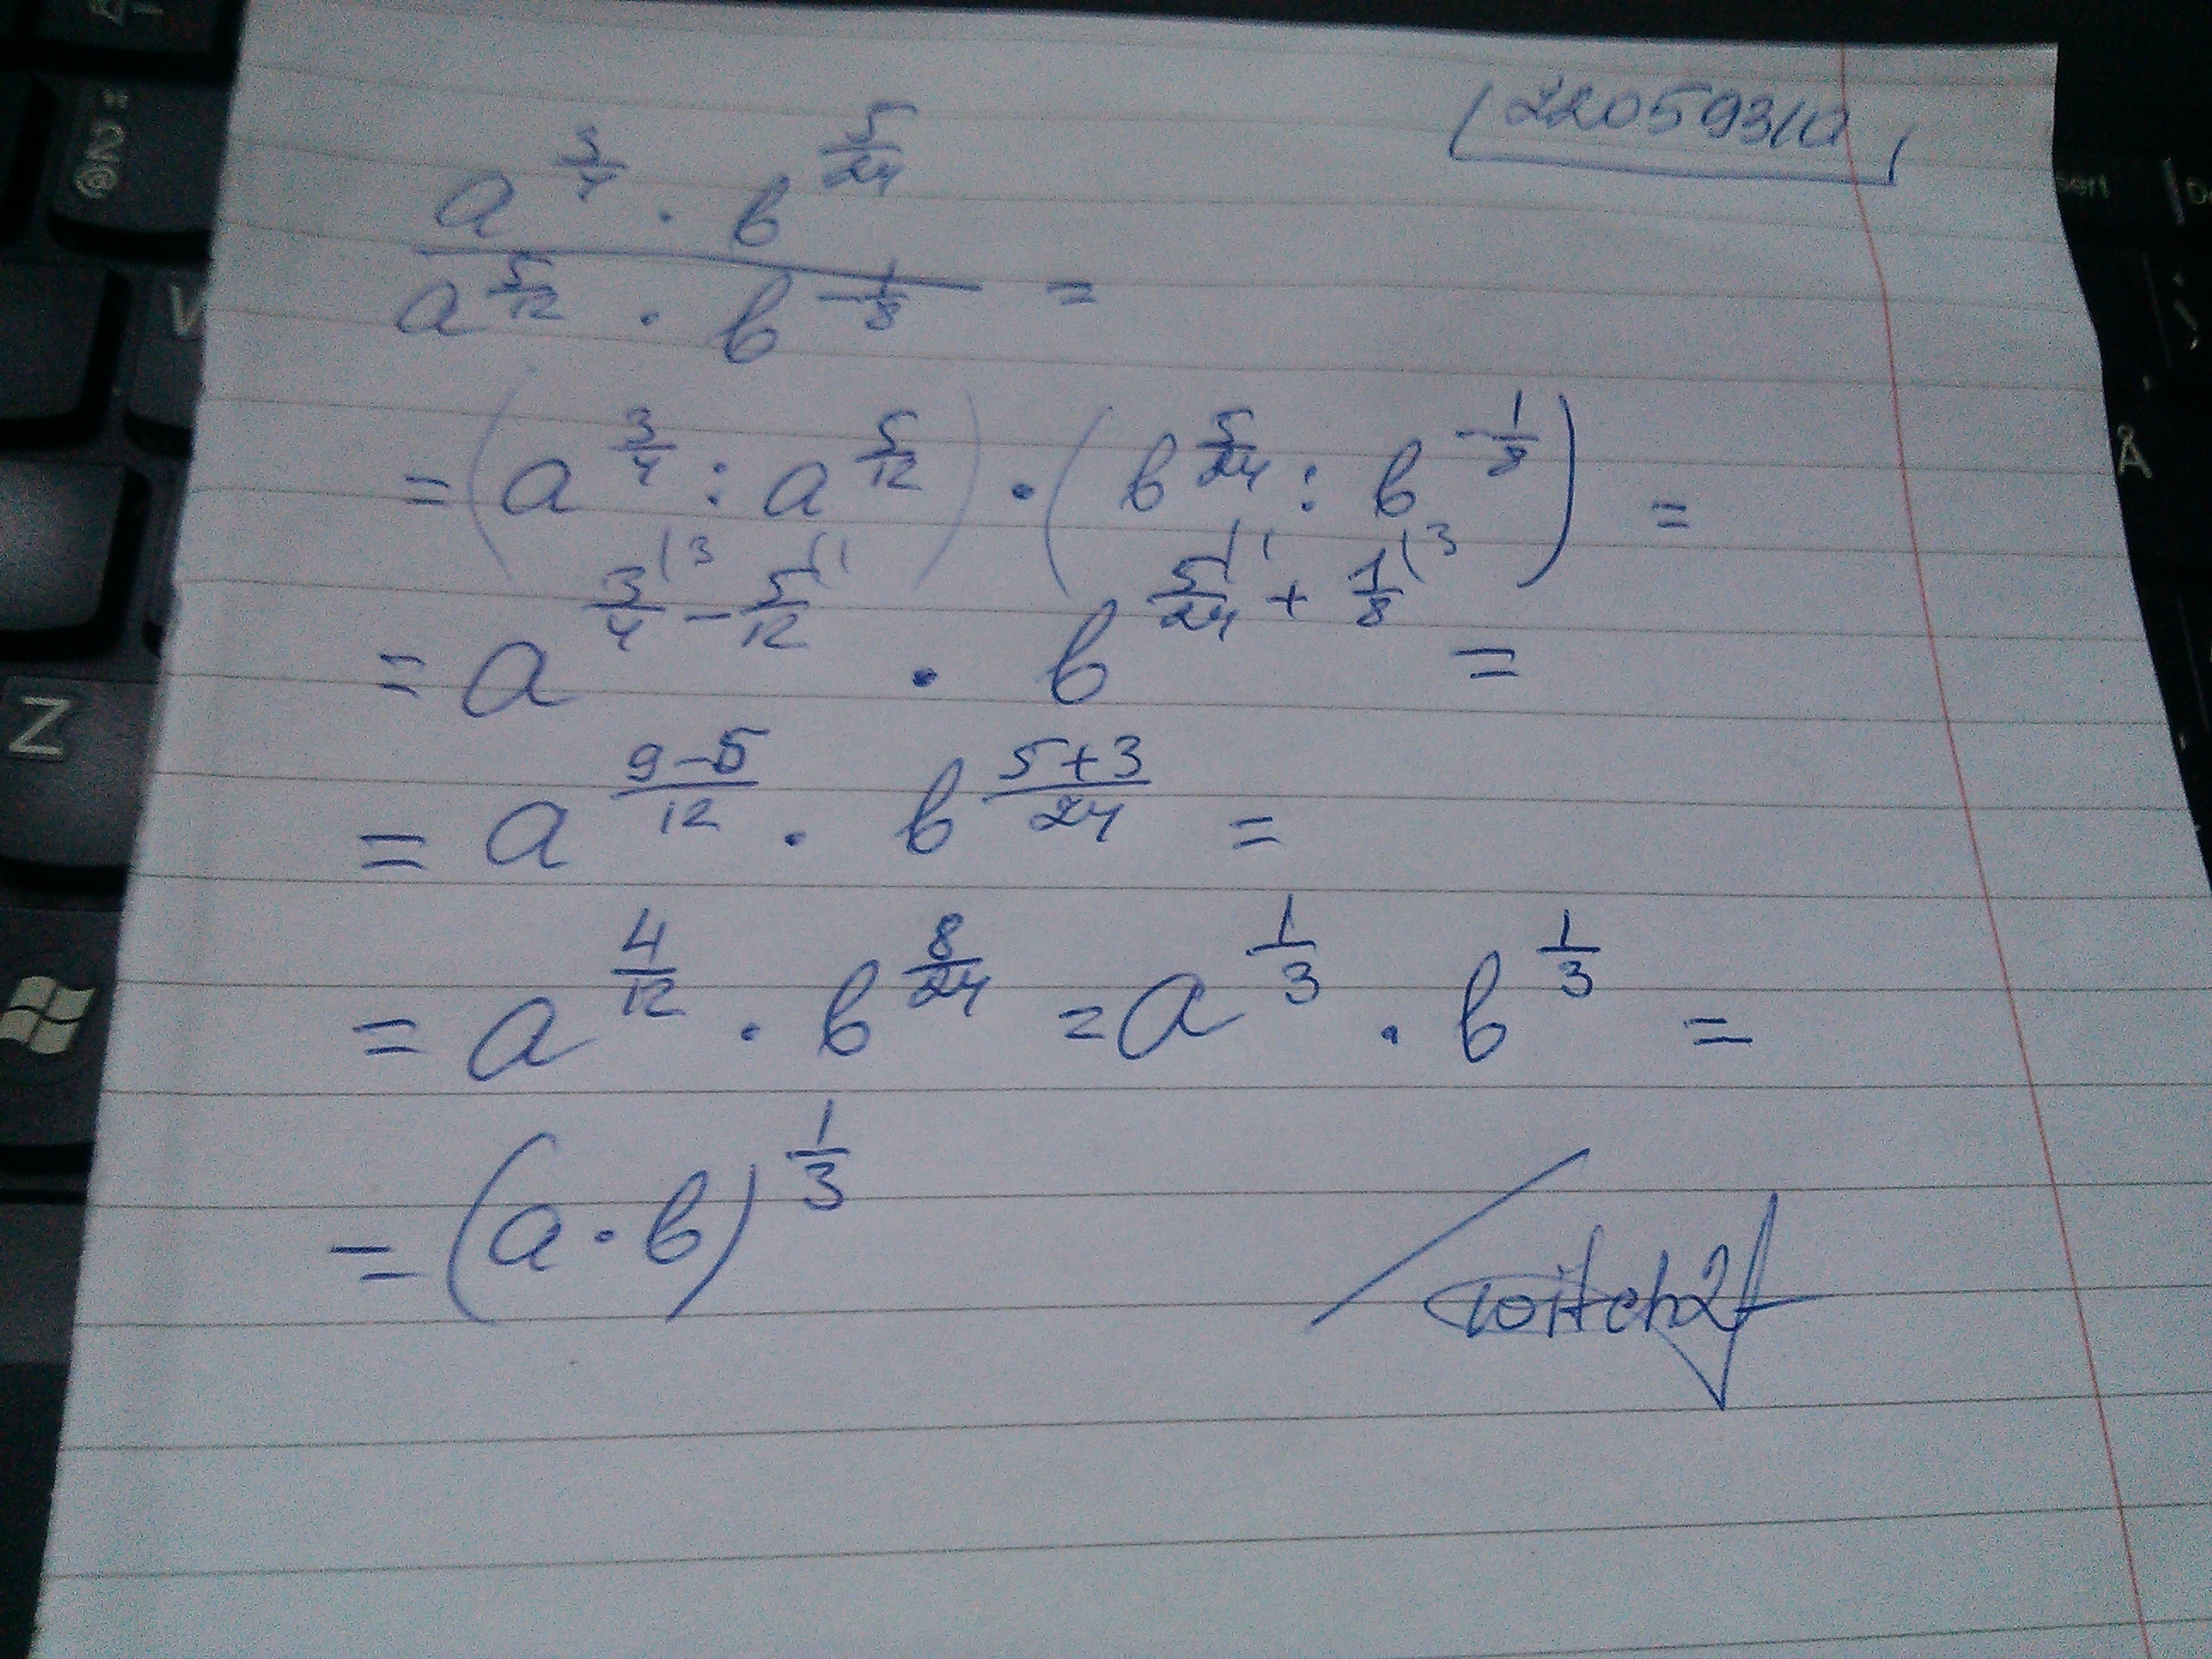 a^(3/4) · b^(5/24)
a^(5/12) · b^(-1/8) =
= (a^(3/4) : a^(5/12)) · (b^(5/24) : b^(-1/8)) =
= a^(3/4 |3 - 5/12 |1) · b^(5/24 |1 + 1/8 |3) =
= a^((9-5)/12) · b^((5+3)/24) =
= a^(4/12) · b^(8/24) = a^(1/3) · b^(1/3) =
= (a · b)^(1/3)
Z
2